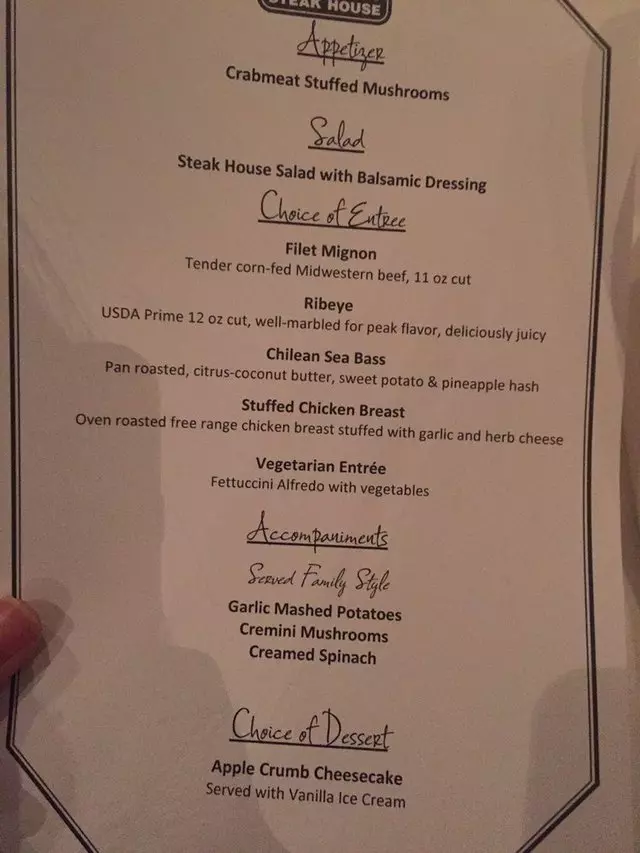 STEAK HOUSE
Appetizer
Crabmeat Stuffed Mushrooms
Salad
Steak House Salad with Balsamic Dressing
Choice of Entree
Filet Mignon
Tender corn-fed Midwestern beef, 11 oz cut
Ribeye
USDA Prime 12 oz cut, well-marbled for peak flavor, deliciously juicy
Chilean Sea Bass
Pan roasted, citrus-coconut butter, sweet potato & pineapple hash
Stuffed Chicken Breast
Oven roasted free range chicken breast stuffed with garlic and herb cheese
Vegetarian Entrée
Fettuccini Alfredo with vegetables
Accompaniments
Served Family Style
Garlic Mashed Potatoes
Cremini Mushrooms
Creamed Spinach
Choice of Dessert
Apple Crumb Cheesecake
Served with Vanilla Ice Cream